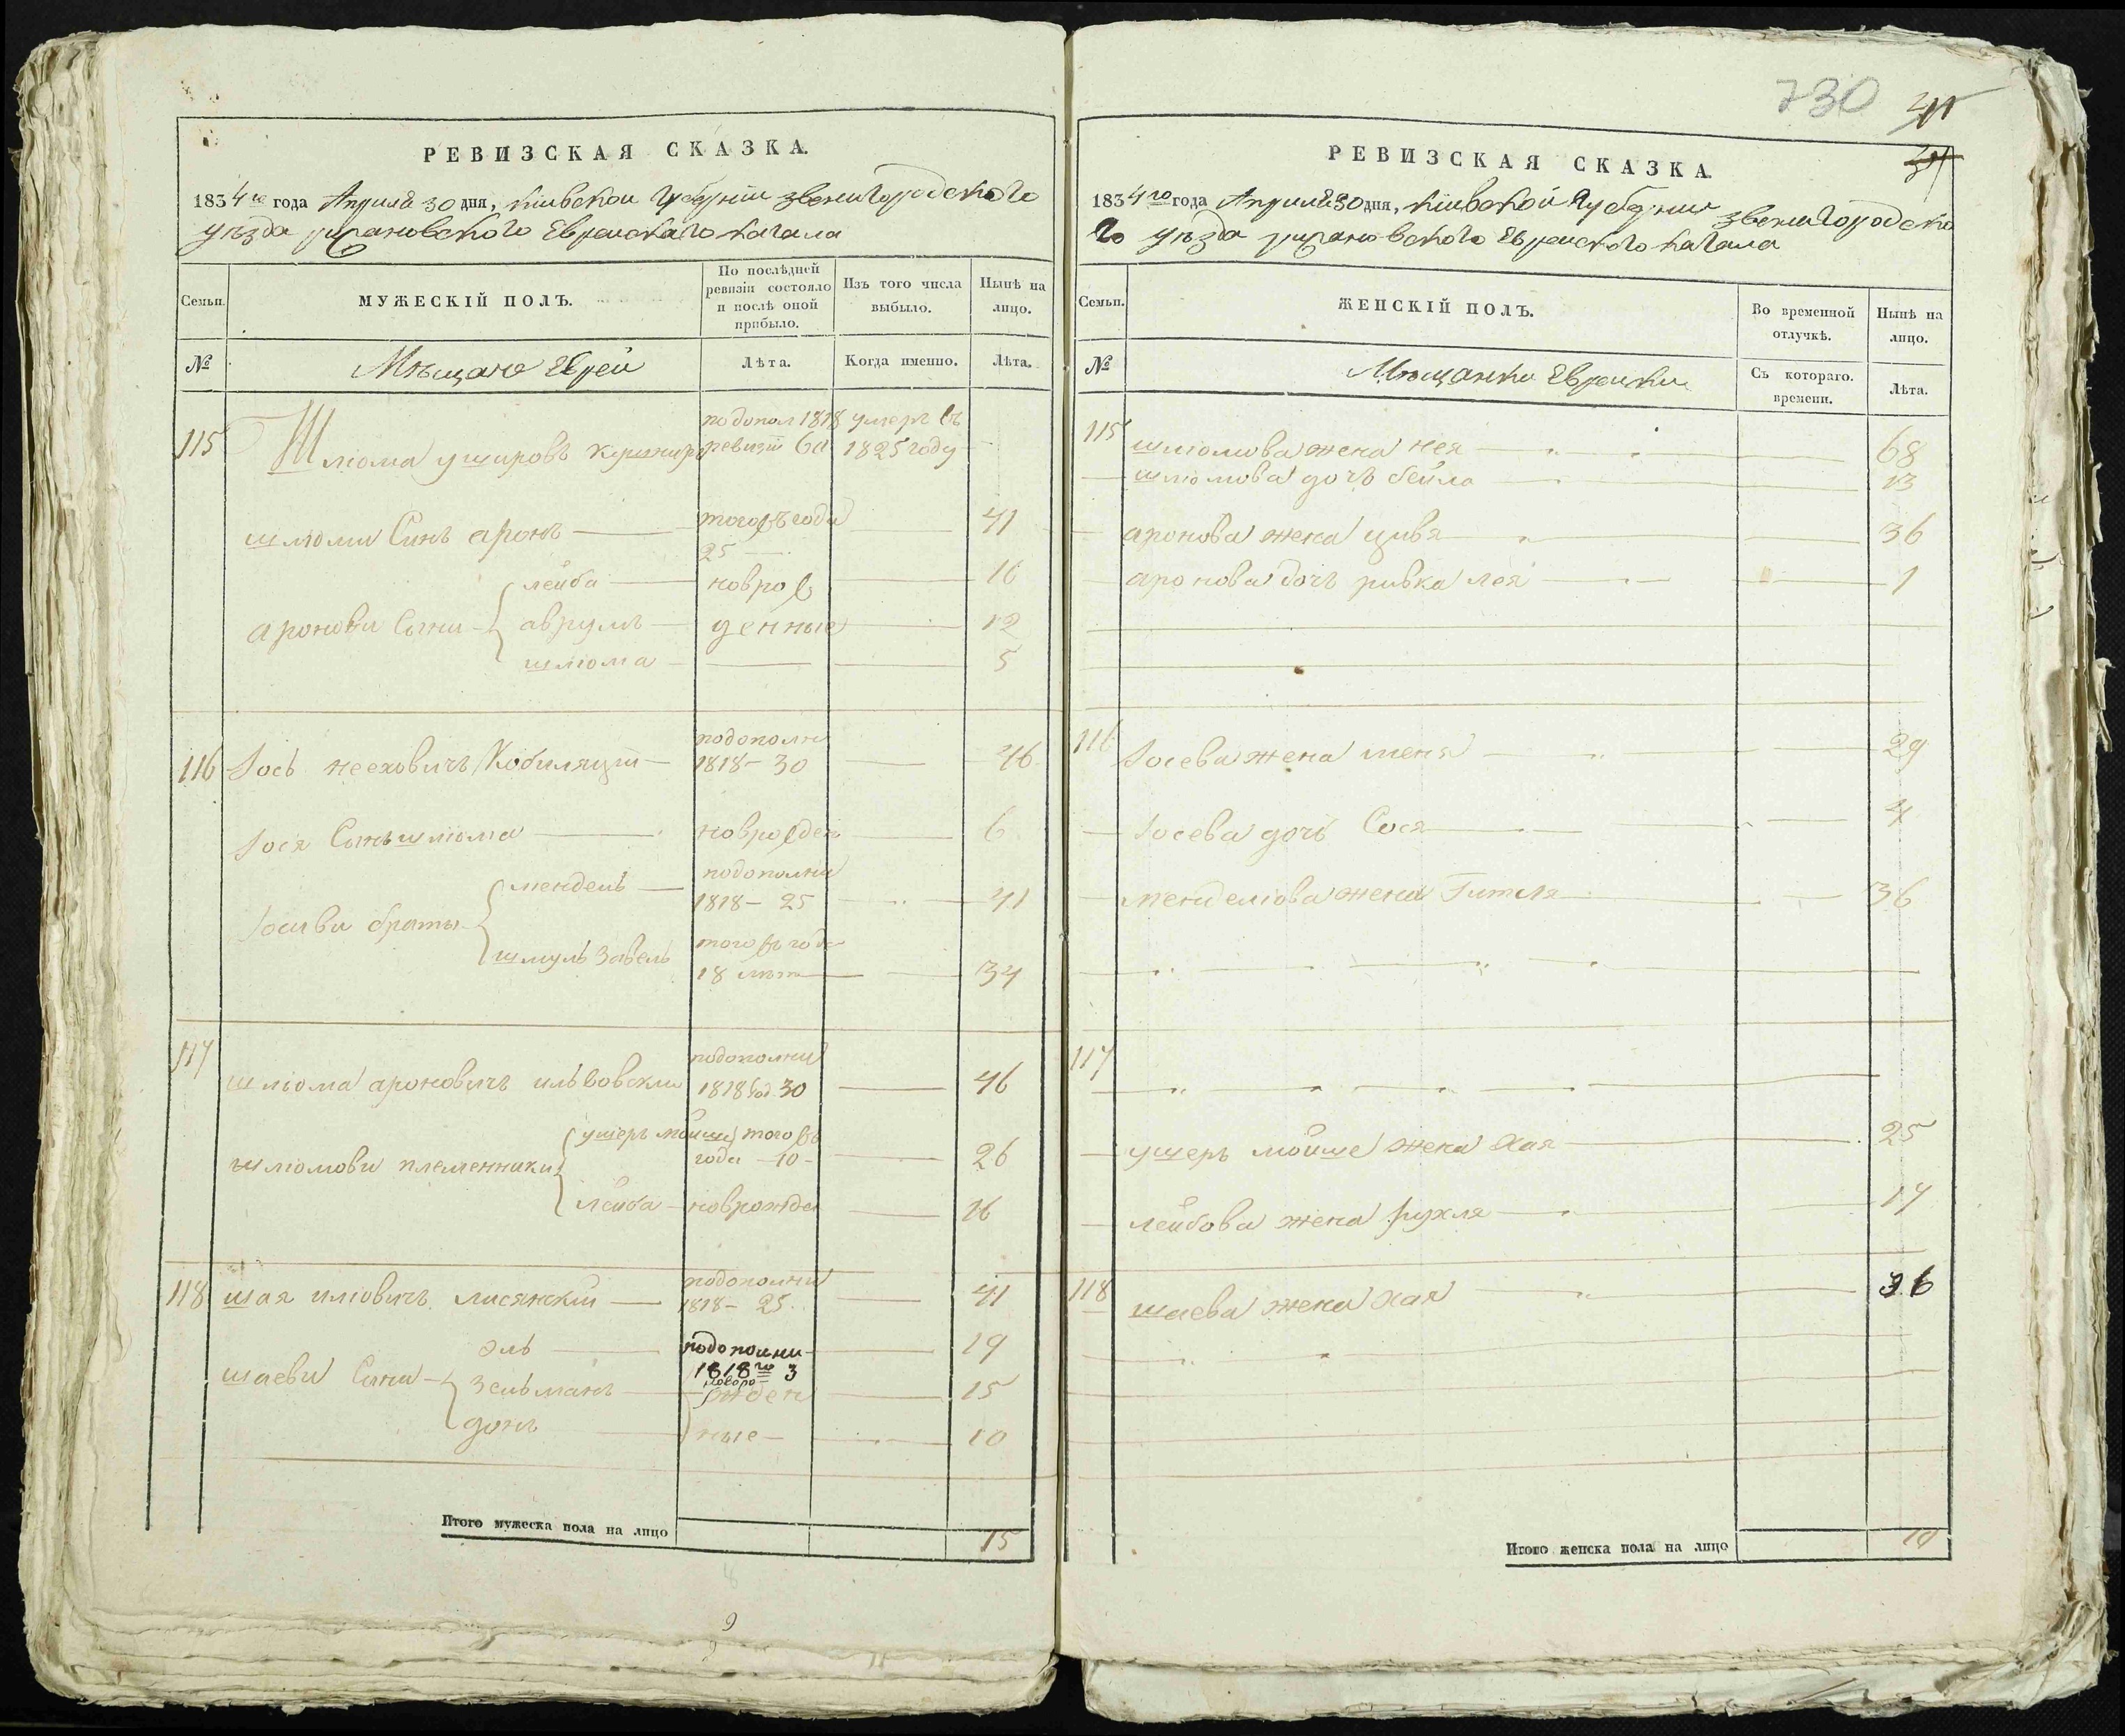 РЕВИЗСКАЯ СКАЗКА.
1834го года Априля 30 дня, Кіивской Губерніи Звенигородского
уѣзда Еврейскаго кагала
Семьи.
МУЖЕСКІЙ ПОЛЪ.
По послѣдней ревизіи состояло и послѣ оной прибыло.
Изъ того числа выбыло.
Нынѣ на лицо.
№
Мѣщане Евреи
Лѣта.
Когда именно.
Лѣта.
115
Шліома Ушировъ
подопол 1818 ревизіи 60
умеръ въ 1825 году
шліоми Синъ аронъ
того года 25
41
аронови Сыни
лейба
новро
16
аврумъ
денные
12
шліома
5
116 Іось Нееховичъ Кобиляцкій
подополн 1818 - 30
46
Іося Сынъ шліома
новрожден
6
Іосиви браты
мендель
подополни 1818 - 25
41
шмуль Завель
того годе 18 лѣт
34
117
шліома ароновичъ ильвовскии
подополни 1818 год 30
46
шліомови племенники
ушеръ мойше
того года - 10 -
26
лейба
новрожден
16
118 шая иліовичъ лисянскии
подополни 1818 - 25
41
шаеви Сини
эль
подополни 1818го 3
19
зельманъ
новоро
жден
15
донъ
ные
10
Итого мужеска пола на лицо
15
730
РЕВИЗСКАЯ СКАЗКА.
1834го года Априля 30 дня, Кіивской Губерніи Звенигородско
го уѣзда Еврейского кагала
Семьи.
ЖЕНСКІЙ ПОЛЪ.
Во временной отлучкѣ.
Нынѣ на лицо.
№
Мѣщанки Еврейки
Съ котораго времени.
Лѣта.
115
шліомова жена нея
68
шліомова дочъ бейла
13
аронова жена цивя
36
аронова дочъ ривка лея
1
116
Іосева жена меня
29
Іосева дочь Сося
4
менделіова жена Гитля
36
117
ушеръ мойше жена хая
25
лейбова жена рухля
17
118
шаева жена хая
36
Итого женска пола на лицо
10